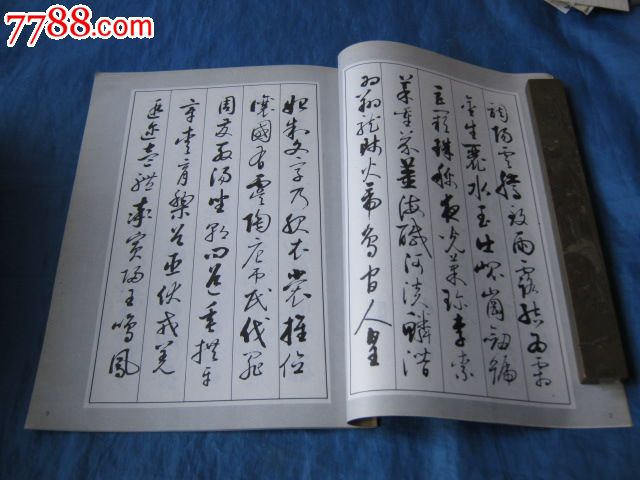 7788.com
調陽雲騰致雨露結為霜
金生麗水玉出崑崗劍號
巨闕珠稱夜光菓珍李柰
菜重芥薑海鹹河淡鱗潛
羽翔龍師火帝鳥官人皇
始制文字乃服衣裳推位
讓國有虞陶唐弔民伐罪
周發殷湯坐朝問道垂拱平
章愛育黎首臣伏戎羌
遐邇壹體率賓歸王鳴鳳